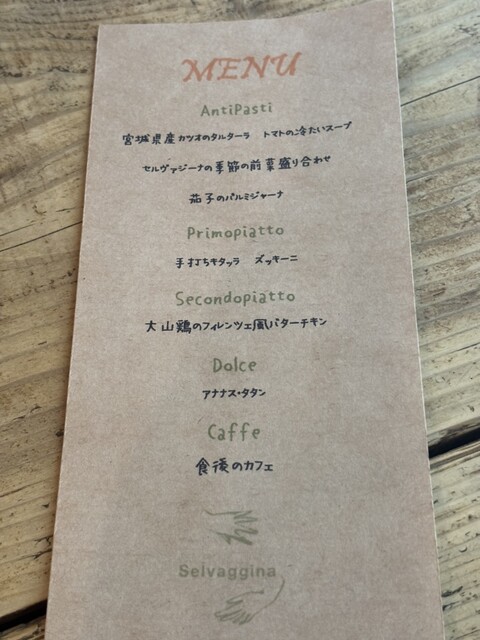 MENU
AntiPasti
宮城県産カツオのタルターラ　トマトの冷たいスープ
セルヴァジーナの季節の前菜盛り合わせ
茄子のパルミジャーナ
Primopiatto
手打ちキタッラ　ズッキーニ
Secondopiatto
大山鶏のフィレンツェ風バターチキン
Dolce
アナナス・タタン
Caffe
食後のカフェ
Selvaggina